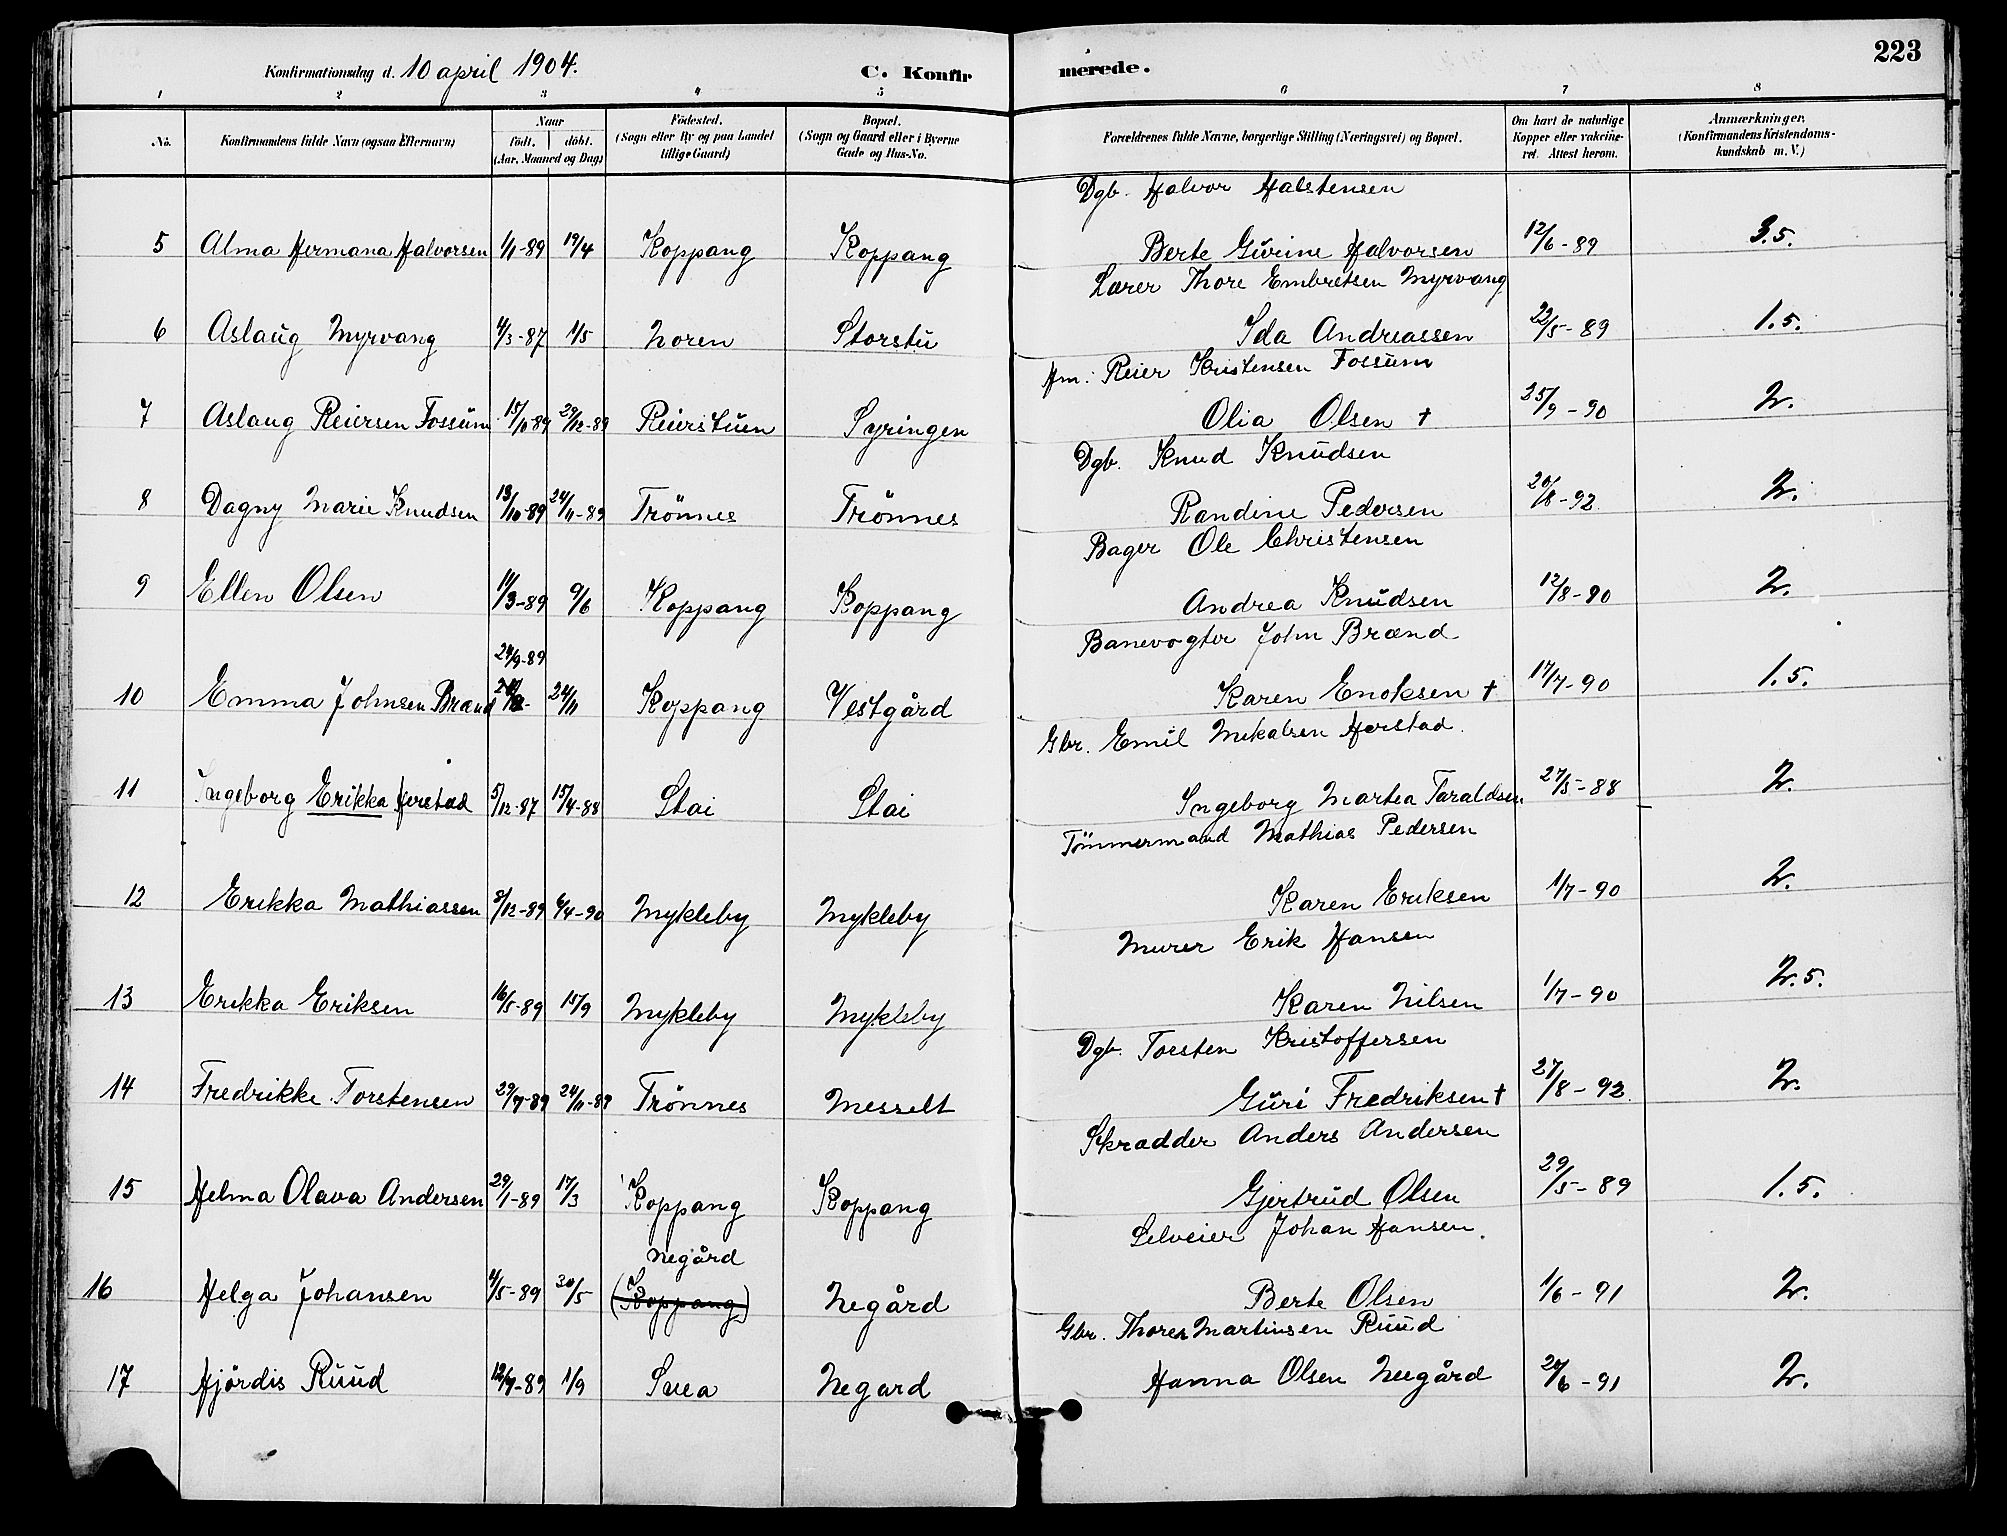 223
Konfirmationsdag d. 10 april 1904. C. Konfirmerede.
1 2 3 4 5 6 7 8
No. Konfirmandens fulde Navn (ogsaa Efternavn) Naar født. døbt. (Aar, Maaned og Dag) Födested. (Sogn eller By og paa Landet tillige Gaard) Bopæl. (Sogn og Gaard eller i Byerne Gade og Hus-No. Forældrenes fulde Navne, borgerlige Stilling (Næringsvei) og Bopæl. Om havt de naturlige Kopper eller vakcineret. Attest herom. Anmærkninger. (Konfirmandens Kristendomskundskab m. V.)
Dgb. Halvor Halstensen
5 Alma Hermana Halvorsen 1/1-89 19/4 Koppang Koppang Berte Gurine Halvorsen 12/6-89 3.5.
Lærer Thore Embretsen Myrvang
6 Aslaug Myrvang 4/3-87 1/5 Noren Storstu Ida Andreassen 22/5-89 1.5.
Hm. Reier Kristensen Fossum
7 Aslaug Reiersen Fossum 15/11-89 29/12-89 Reierstuen Syringen Olia Olsen † 25/9-90 2.
Dgb. Knud Knudsen
8 Dagny Marie Knudsen 13/10-89 24/11-89 Trönnes Trönnes Randine Pedersen 20/8-92 2.
Bager Ole Christensen
9 Ellen Olsen 14/3-89 9/6 Koppang Koppang Andrea Knudsen 12/8-90 2.
Banevogter John Brænd
24/9-89
10 Emma Johnsen Brænd 24/11 Koppang Vestgård Karen Enoksen † 17/7-90 1.5.
Gbr. Emil Mikalsen Horstad.
11 Ingeborg Erikka Horstad 5/12-87 15/4-88 Stai Stai Ingeborg Martea Taraldsen 27/5-88 2.
Tömmermand Mathias Pedersen
12 Erikka Mathiassen 8/12-89 6/4-90 Mykleby Mykleby Karen Eriksen 1/7-90 2.
Murer Erik Hansen
13 Erikka Eriksen 16/5-89 15/9 Mykleby Mykleby Karen Nilsen 1/7-90 2.5.
Dgb. Torsten Kristoffersen
14 Fredrikke Torstensen 29/9-89 24/11-89 Trönnes Messelt Guri Fredriksen † 27/8-92 2.
Skrædder Anders Andersen
15 Helma Olava Andersen 29/1-89 17/3 Koppang Koppang Gjertrud Olsen 29/5-89 1.5.
Selveier Johan Hansen.
Negård
16 Helga Johansen 4/5-89 30/5 (Koppang) Negård Berte Olsen 1/6-91 2.
Gbr. Thorer Martinsen Ruud
17 Hjördis Ruud 12/7-89 1/9 Negard Hanna Olsen Neegård 24/6-91 2.